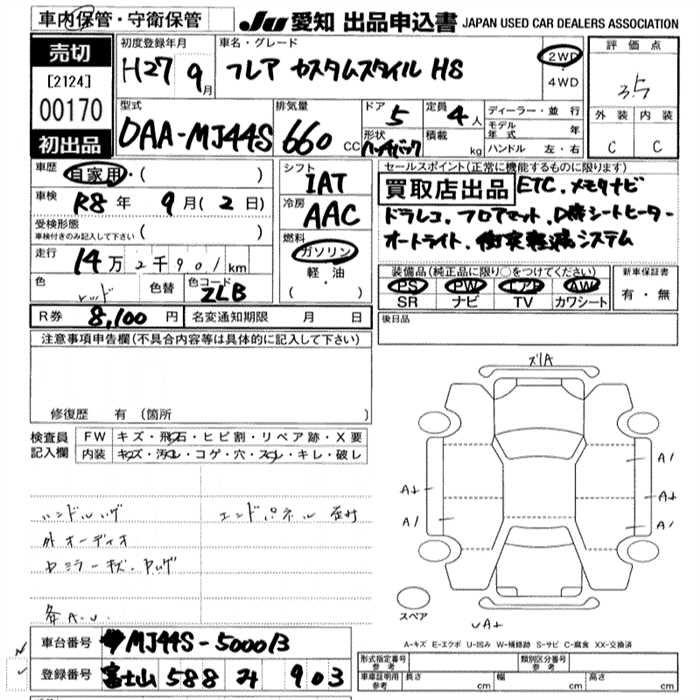 車内保管・守衛保管
JU 愛知 出品申込書 JAPAN USED CAR DEALERS ASSOCIATION
売切
[2124]
00170
初出品
初度登録年月
H27 9月
車名・グレード
フレア カスタムスタイル HS
2WD
・
4WD
評価点
3.5
外装 内装
C C
型式
DAA-MJ44S
排気量
660 CC
ドア 5
定員 4人
形状 ハッチバック
積載 kg
ディーラー・並行
モデル年式 年
ハンドル 左・右
車歴 自家用・( )
車検 R8年 9月(2日)
受検形態
車検付きのみ記入して下さい ( )
走行 14万2千901km
色 レッド 色替 色コード ZLB
シフト
IAT
冷房
AAC
燃料
ガソリン
軽・油
( )
セールスポイント(正常に機能するものに限ります)
買取店出品 ETC.メモリナビ
ドラレコ.フロアマット.D席シートヒーター
オートライト.衝突軽減システム
装備品(純正品に限り○をつけてください)
PS PW エアB AW
SR ナビ TV カワシート
新車保証書
有・無
R券 8,100円 名変通知期限 月 日
後日品
注意事項申告欄(不具合内容等は具体的に記入して下さい)
修復歴 有(箇所 )
検査員
記入欄
FW キズ・飛石・ヒビ割・リペア跡・X要
内装 キズ・汚れ・コゲ・穴・スレ・キレ・破レ
ハンドル
エンドパネル
外オーディオ
各A.U.
スリA
A1
A+
A+
A1
A1
スペア
A+
A-キズ E-エクボ U-凹み W-補修跡 S-サビ C-腐食 XX-交換済
車台番号 MJ44S-500013
登録番号 富士山 588 903
形式指定番号
参考
類別区分番号
参考
車庫証明用
参考
長さ cm
幅 cm
高さ cm